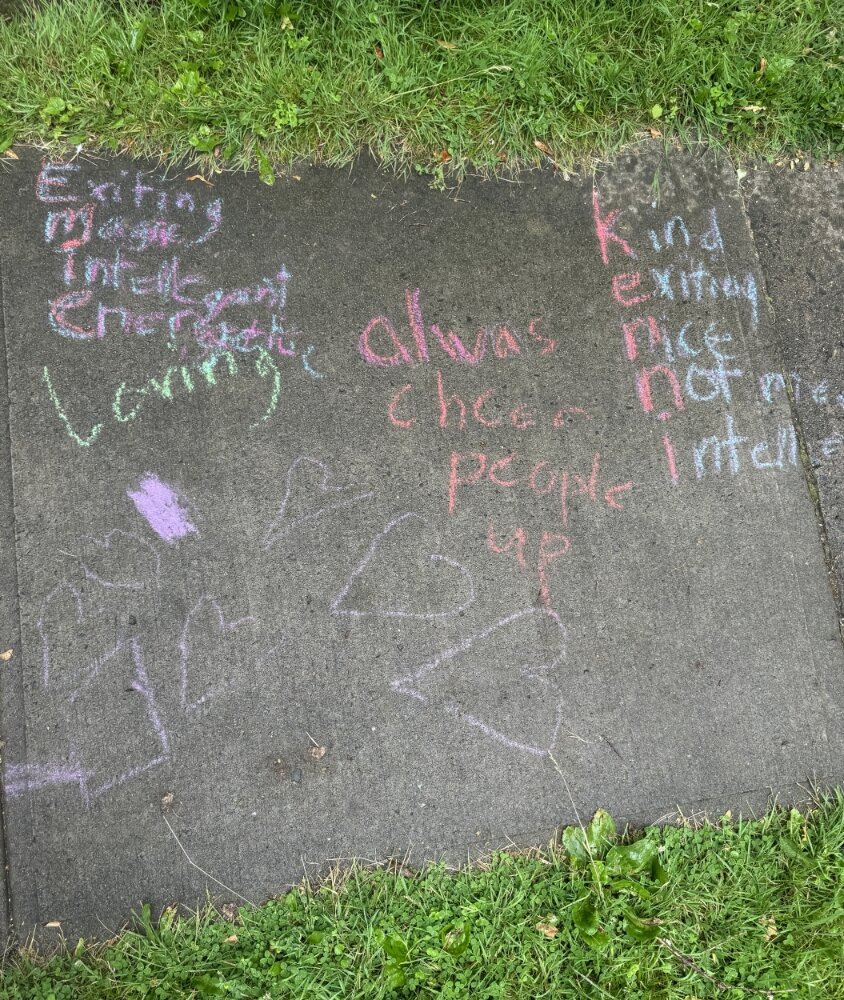 Exiting
Magic
intellegant
energetic
Loving
alwas
cheer
people
up
kind
exiting
nice
not mea
intelle